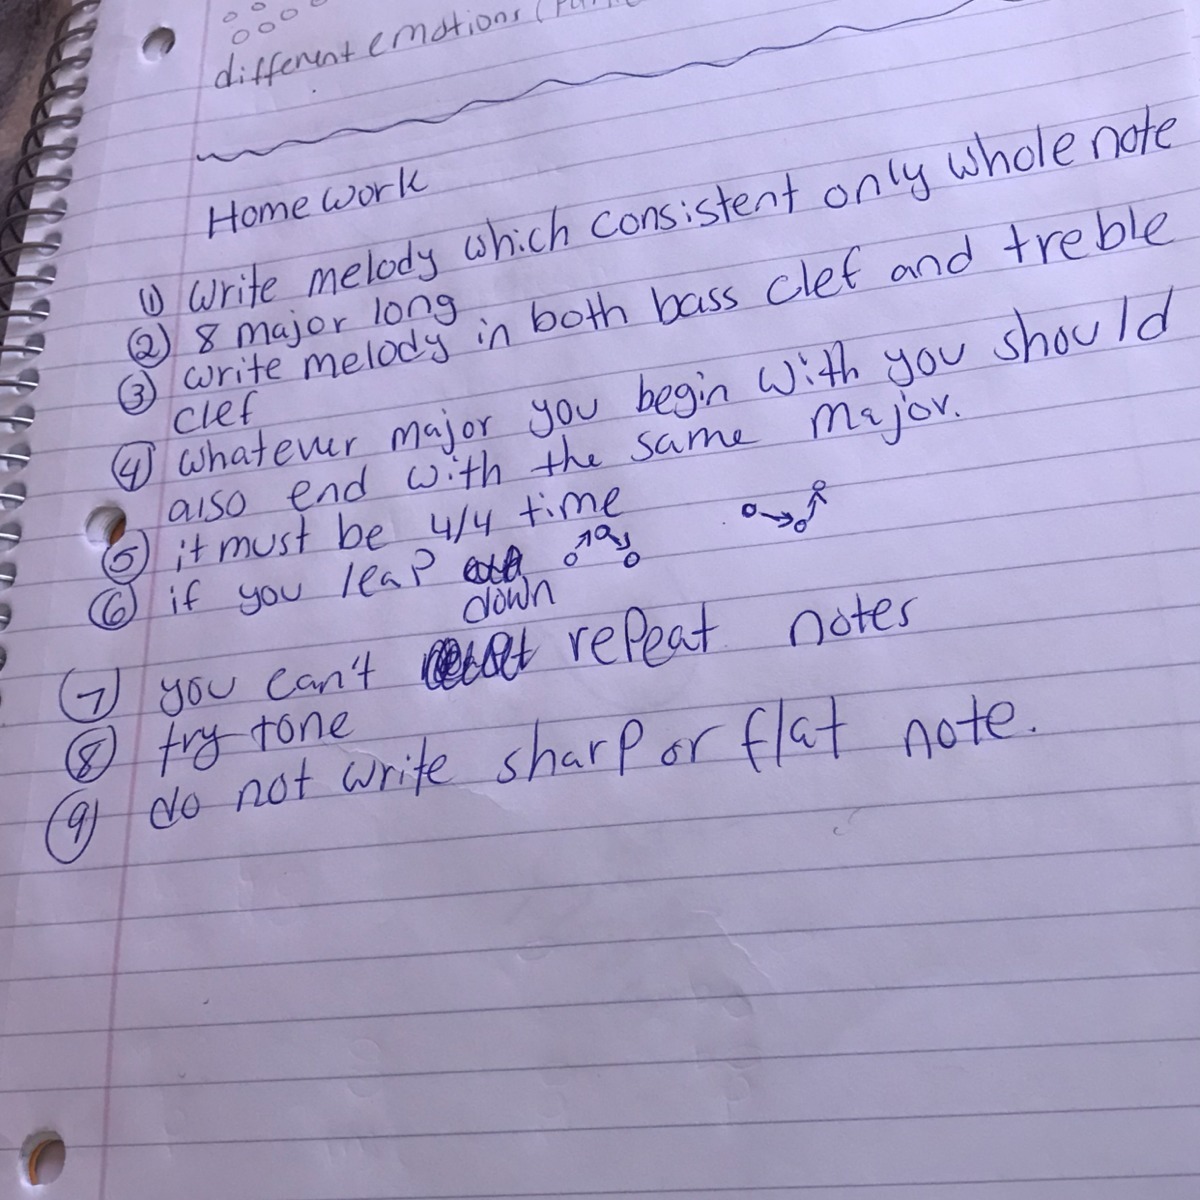 different emotions
Home work
① write melody which consistent only whole note
② 8 major long
③ write melody in both bass clef and treble
clef
④ whatever major you begin with you should
also end with the same major.
⑤ it must be 4/4 time
⑥ if you leap
down
⑦ you can't repeat notes
⑧ try tone
⑨ do not write sharp or flat note.